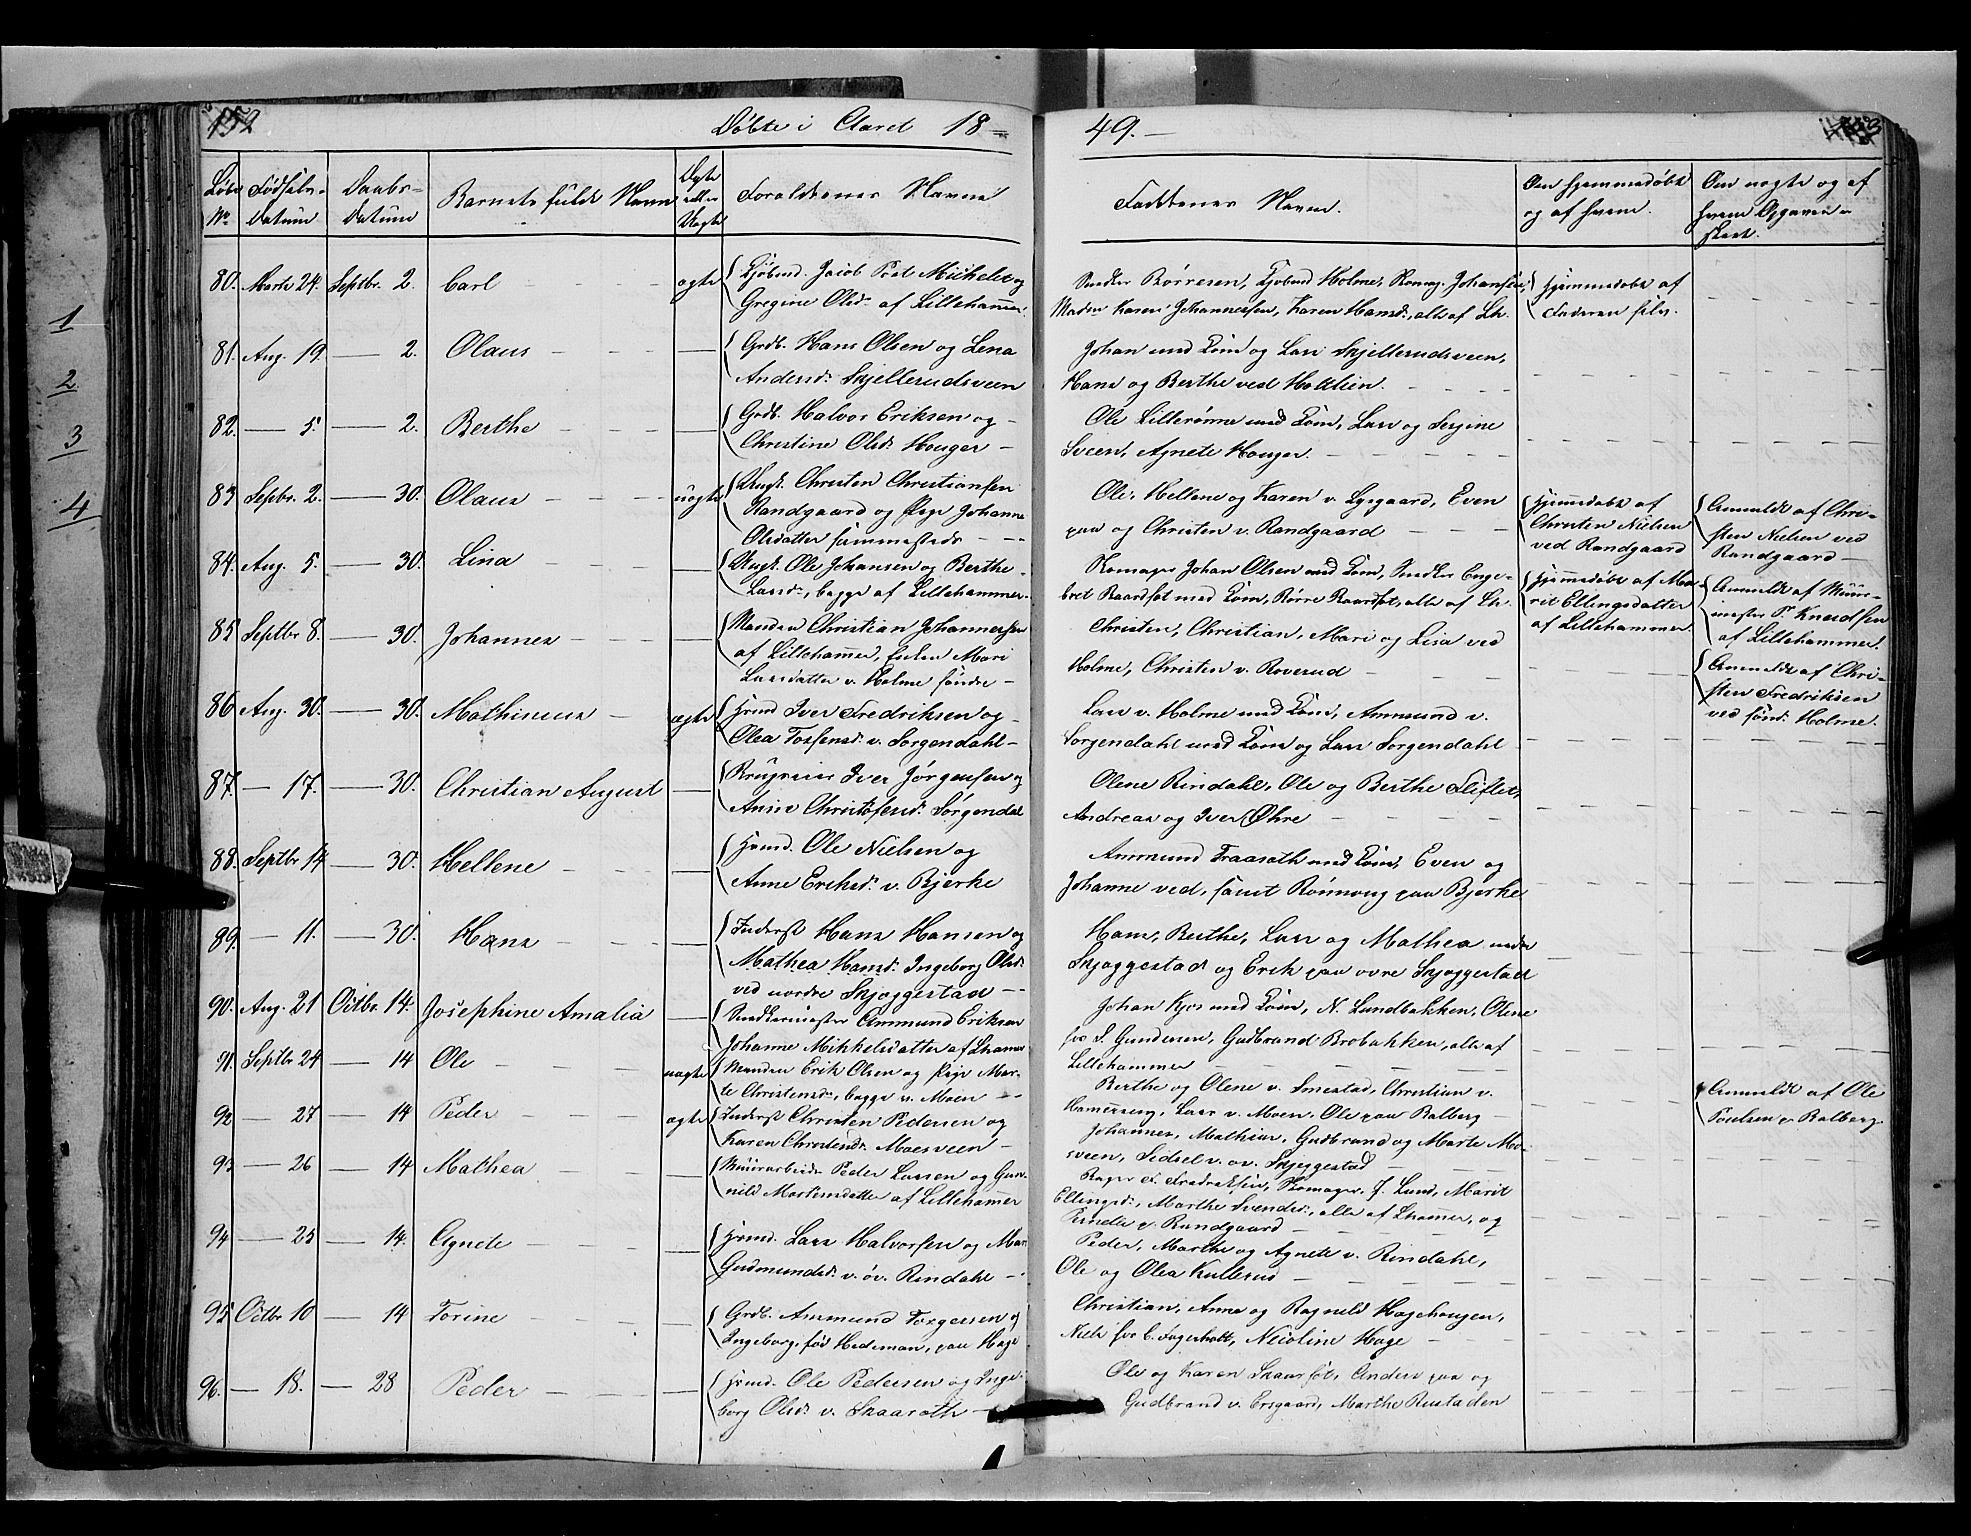 152
Døbte i Aaret 18
49.
Løbe Fødsels- Daabs- Barnets fulde Navn Ægte Forældrenes Navne
No. Datum Datum eller Uægte
Faddernes Navne. Om hjemmedøbt Om uægte og af
og af hvem. hvem Opgaven er skeet.
80. Marts 24. Septbr. 2. Carl ægte Kjøbmd. Jacob Post Michelet og
Gregine Olsdr. af Lillehammer.
Snedker Børresen, Kjøbmd Holme, Romag. Johansen, Hjemmedøbt af
Madm Karen Johannessen, Karen Hansdr., alle af Lh. Faderen selv.
81. Aug. 19. — 2. Olaus — Grdb. Hans Olsen og Lena
Andersdr. Skjellerudsveen
Johan med Kone og Lars Skjellerudsveen,
Hans og Berthe ved Holtlien.
82. — 5. — 2. Berthe — Grdb. Halvor Eriksen og
Christine Olsdr. Houger
Ole Lillerønne med Kone, Lars og Sergine
Sveen, Agnete Houger.
83 Septbr. 2. — 30. Olaus uægte Ungk. Christen Christiansen
Randgaard og Pige Johanne
Olsdatter sammesteds
Ole, Hellene og Karen v. Lysgaard, Even
paa og Christen v. Randgaard
Hjemmedøbt af
Christen Nielsen
ved Randgaard
Anmeldt af Chri-
sten Nielsen ved
Randgaard
84. Aug. 5. — 30. Lina — Ungk. Ole Johansen og Berthe
Larsdr., begge af Lillehammer.
Romager Johan Olsen med Kone, Snedker Enge-
bret Baardset med Kone, Børre Baardset, alle af Lh.
Hjemmedøbt af Ma-
rit Ellingsdatter
af Lillehammer.
Anmeldt af Muur-
mester P. Knudsen
af Lillehammer.
85 Septbr 8. — 30. Johannes — Manden Christian Johannessen
af Lillehammer, Enken Mari
Larsdatter v. Holme søndre
Christen, Christian, Mari og Lisa ved
Holme, Christen v. Roverud
Anmeldt af Chri-
sten Fredriksen
ved sønd. Holme.
86 Aug. 30. — 30. Mathineus ægte Hsmd Iver Fredriksen og
Olea Tostensdr. v. Sorgendahl
Lars v. Holme med Kone, Ammund v.
Sorgendahl med Kone og Lars Sorgendahl
87. — 17. — 30. Christian August — Iver Jørgensen og
Anne Christofersdr. Sorgendal
Olene Rindahl, Ole og Berthe Fliflet,
Andreas og Iver Øhre
88. Septbr 14 — 30. Hellene — Hsmd. Ole Nielsen og
Anne Eriksdr. v. Bjerke
Ammund Fraaroth med Kone, Even og
Johanne ved, samt Rønnoug paa Bjerke
89. — 11. — 30. Hans — Inderst Hans Hansen og
Mathea Hansdr. Ingeborg Olsdr.
ved nordre Skjøggestad
Hans, Berthe, Lars og Mathea nedre
Skjøggestad og Erik paa øvre Skjøggestad
90. Aug. 21 Octbr. 14. Josephine Amalia — Snedkermester Ammund Eriksen
Johanne Mikkelsdatter af Lhamer
Johan Kjos med Kone, N. Lundbakken, Olene
for S. Gundersen, Gudbrand Brobakken, alle af
Lillehammer
91. Septbr 24 — 14 Ole uægte Manden Erik Olsen og Pige Mar-
te Christensdr., begge v. Moen
Berthe og Olene v. Smestad, Christian v.
Hamerseng, Lars v. Moen, Ole paa Balberg
Anmeldt af Ole
Poulsen v. Balberg.
92 — 27 — 14 Peder ægte Inderst Christen Pedersen og
Karen Christensdr. Moesveen
Johannes, Mathias, Gudbrand og Marte Moe-
sveen, Sidsel v. øv. Skjøggestad
93 — 26 — 14 Mathea — Muurarbeider Peder Larsen og Gun-
nild Mortensdatter af Lillehammer
Bager A. Fredriksen, Romager J. Lund, Marit
Ellingsdr., Marthe Svendsdr., alle af Lhammer, og
v. Randgaard
94 — 25 — 14. Agnete — Hsmd. Lars Halvorsen og Mari
Gudmundsdr. v. øv. Rindahl
Peder, Marthe og Agnete v. Rindahl,
Ole og Olea Kullerud
95 Octbr 10 — 14 Torine — Grdb. Ammund Torgersen og
Ingeborg, fød Hedeman, paa Hage
Christian, Anne og Ragnild Hagehougen,
Niels for C. Fagerholt, Nicoline Hage
96. — 18. — 28 Peder — Hsmd. Ole Pedersen og Inge-
borg Olsdr. v. Skaaroth
Ole og Karen Skaarset, Anders paa og
Gudbrand v. Ersgaard, Marthe Rustaden
1
2
3
4